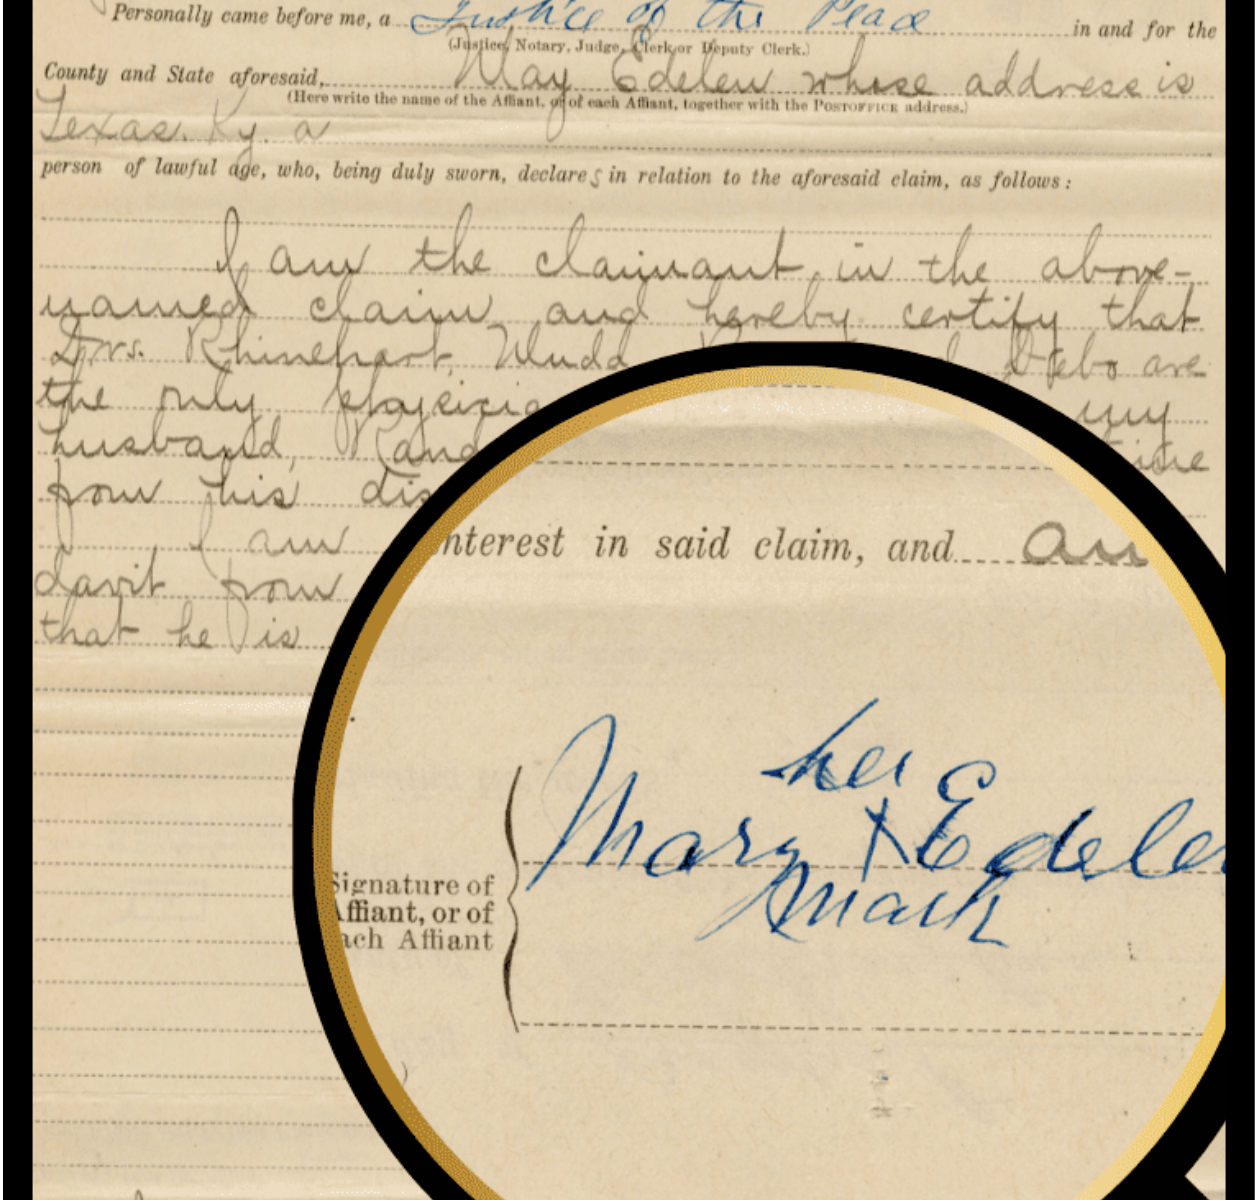 Personally came before me, a Justice of the Peace in and for the
(Justice, Notary, Judge, Clerk or Deputy Clerk.)
County and State aforesaid, May Edelen whose address is
(Here write the name of the Affiant, or of each Affiant, together with the POSTOFFICE address.)
Texas. Ky. a
person of lawful age, who, being duly sworn, declares in relation to the aforesaid claim, as follows:
I am the claimant in the above-
named claim and hereby certify that
Drs. Rhinehart, Mudd are
the only my
husband,
from this
I am
davit from
that he is
nterest in said claim, and
her
Mary X Edele
mark
Signature of
Affiant, or of
ach Affiant